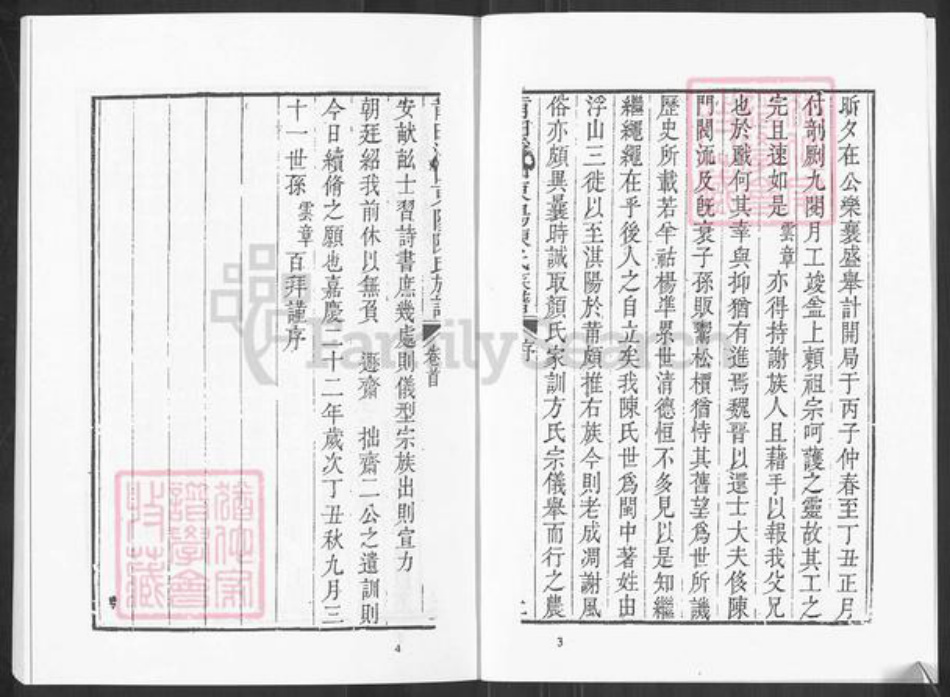 昕夕在公樂襄盛舉計開局于丙子仲春至丁丑正月
付剞劂九閱月工竣盒上賴祖宗呵護之靈故其工之
完且速如是 雲章 亦得持謝族人且藉手以報我父兄
也於戲何其幸與抑猶有進焉魏晉以還士大夫侈陳
門閥流及旣衰子孫販鬻松檟猶恃其舊望為世所譏
歷史所載若羊祜楊準累世清德恒不多見以是知繼
繼繩繩在乎後人之自立矣我陳氏世為閩中著姓由
浮山三徙以至淇陽於莆頗推右族今則老成凋謝風
俗亦頗異曩時誠取顏氏家訓方氏宗儀舉而行之農
序
3
安畎畝士習詩書庶幾處則儀型宗族出則宣力
朝廷紹我前休以無負 遯齋 拙齋二公之遺訓則
今日續脩之願也嘉慶二十二年歲次丁丑秋九月三
十一世孫 雲章 百拜謹序
卷首
4
FamilySearch